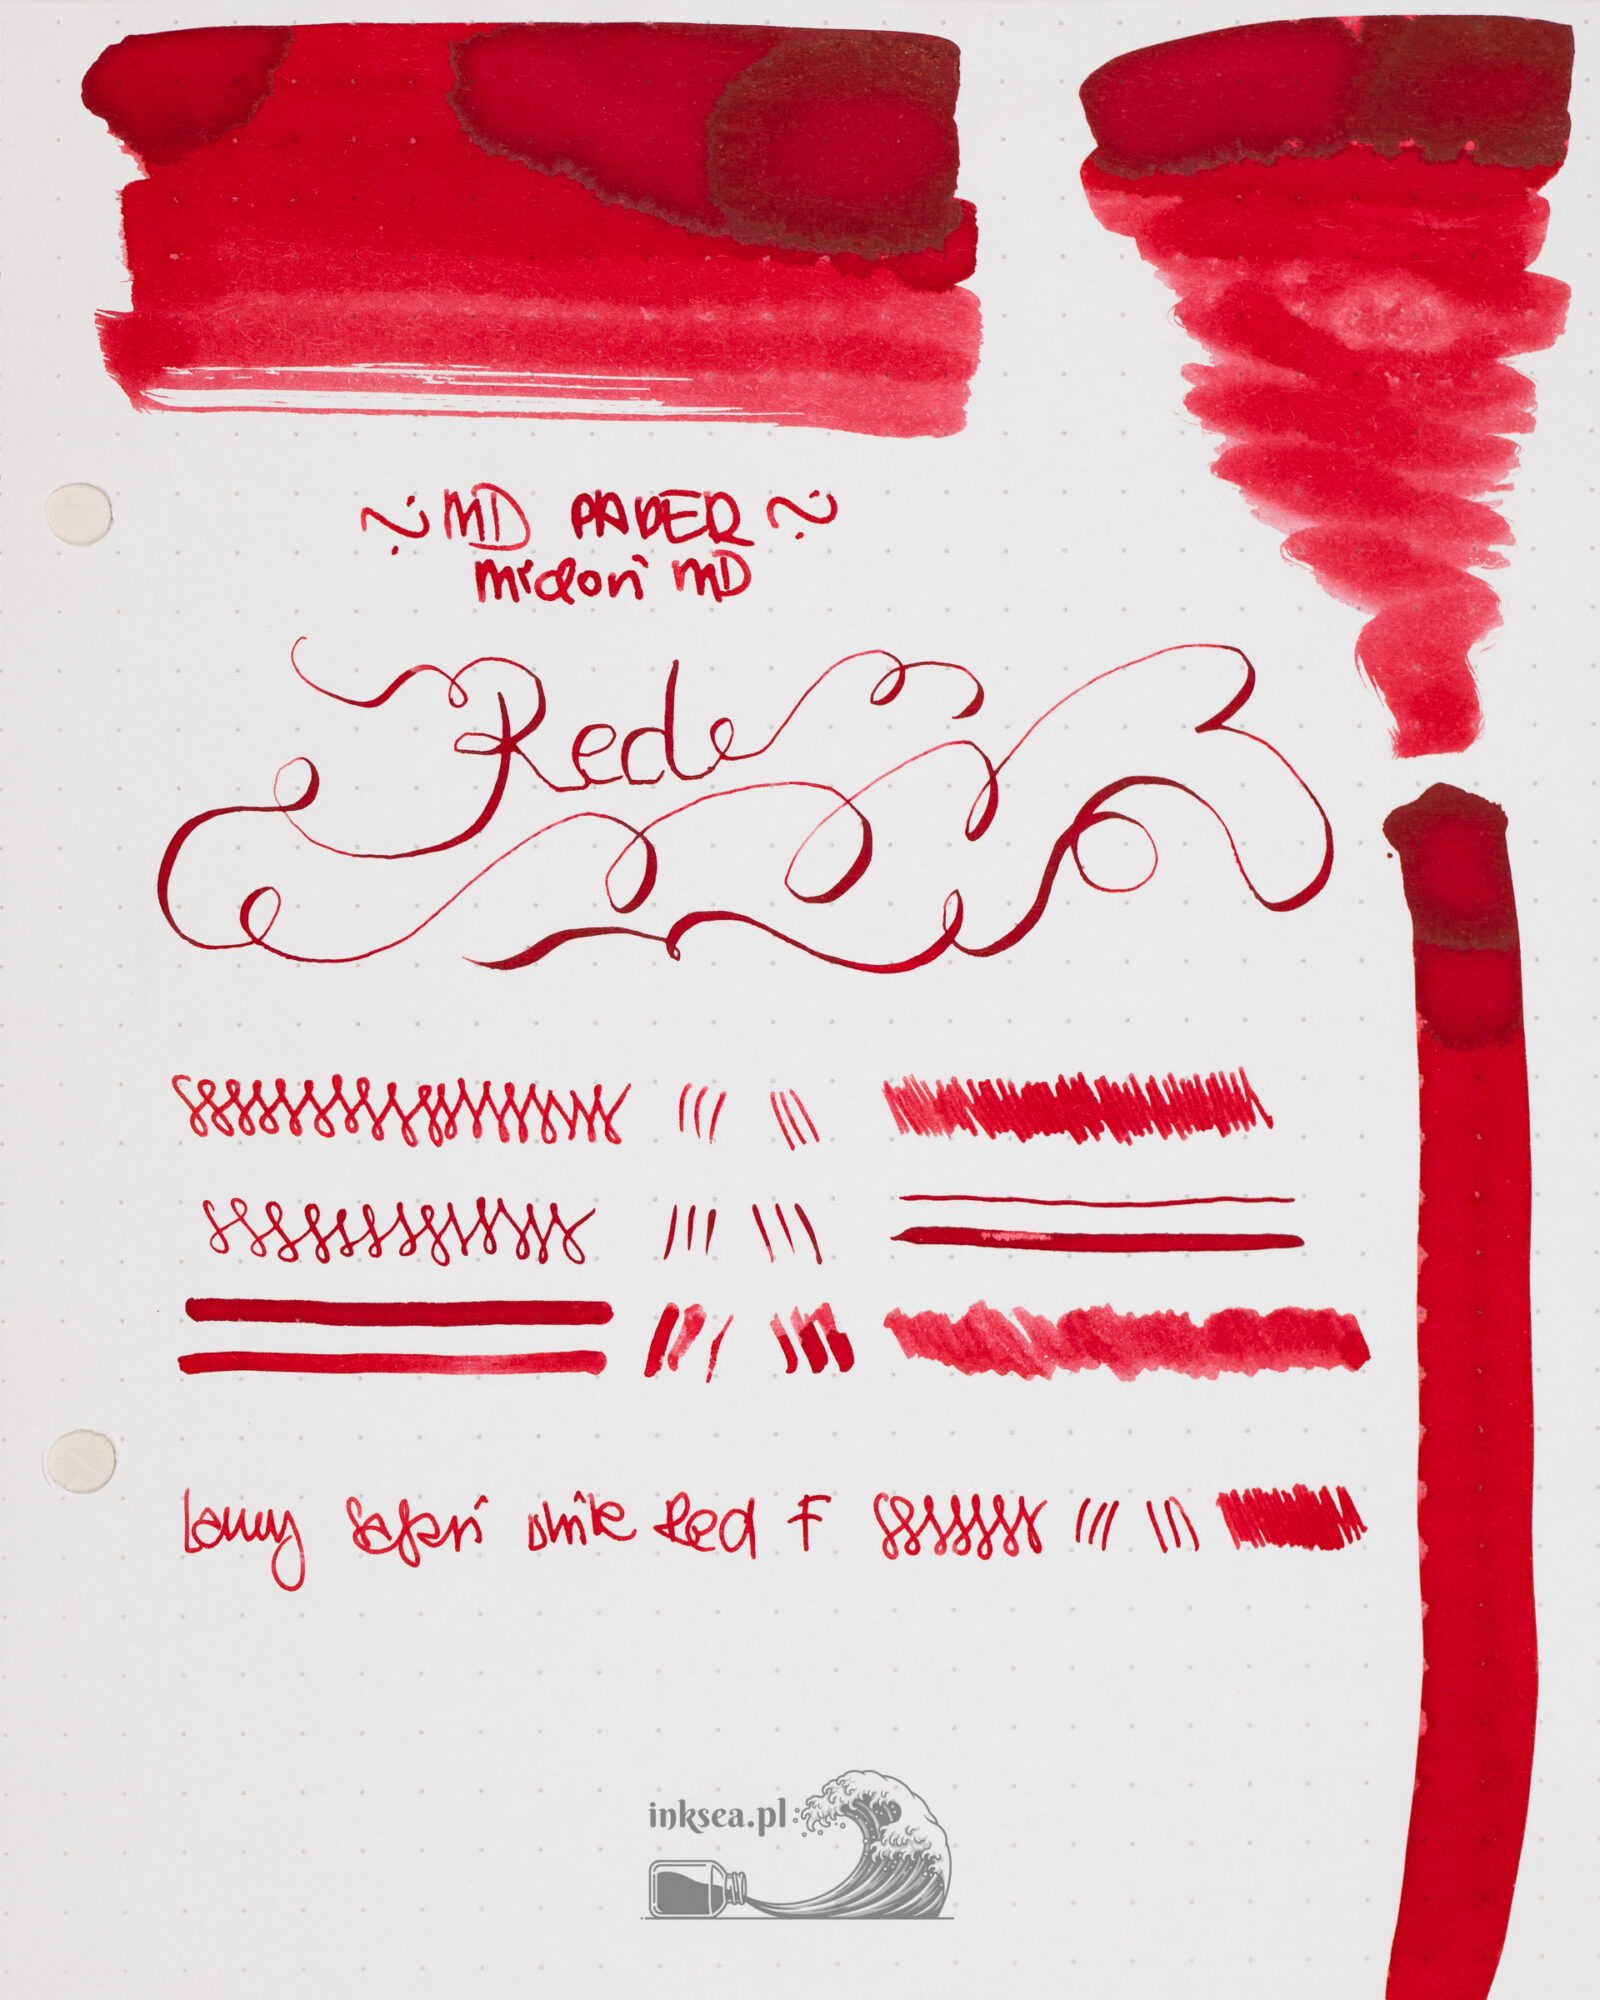 ~ MD PAPER ~
Midori MD
Rede
Lamy Safari white Red F
inksea.pl